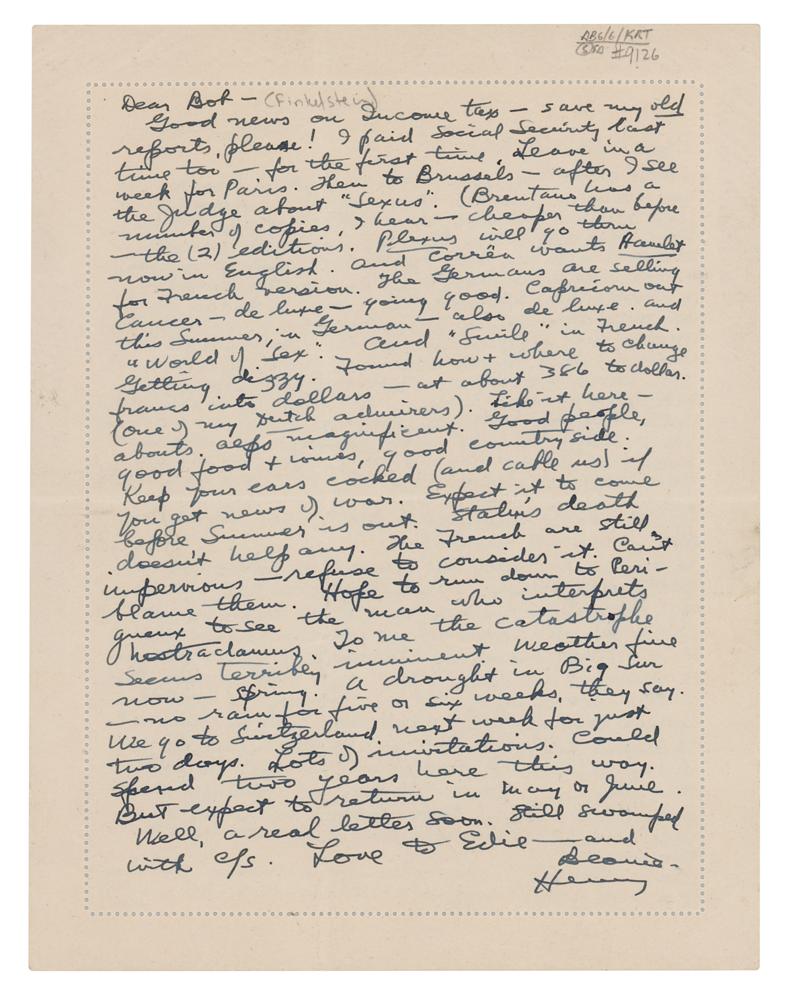 ABG/6/KRT
#9126
Dear Bob — (Finkelstein)
Good news on Income tax — save my old
reports, please! I paid Social Security last
time too — for the first time. Leave in a
week for Paris. Then to Brussels — after I see
the Judge about "Sexus". (Brentano has a
number of copies, I hear — cheaper than before
— the (2) editions. Plexus will go thru
now in English. And Corrêa wants Hamlet
for French version. The Germans are selling
Cancer — de luxe — going good. Capricorn out
this Summer, in German — also de luxe. And
"World of Sex". And "Smile" in French.
Getting dizzy. Found how + where to change
francs into dollars — at about 386 to dollar.
(one of my Dutch admirers). Like it here —
abouts. magnificent. Good people,
good food + wines, good country side.
Keep your ears cocked (and cable us) if
you get news of war. Expect it to come
before Summer is out. Stalin's death
doesn't help any. The French are still
impervious — refuse to consider it. Can't
blame them. Hope to run down to Peri-
gueux to see the man who interprets
Nostradamus. To me the catastrophe
seems terribly imminent. Weather fine
now — Spring. A drought in Big Sur
— no rain for five or six weeks, they say.
We go to Switzerland next week for just
two days. Lots of invitations. Could
spend two years here this way.
But expect to return in May or June.
Well, a real letter soon. Still swamped
with c/s. Love to Edie — and
Beanie —
Henry